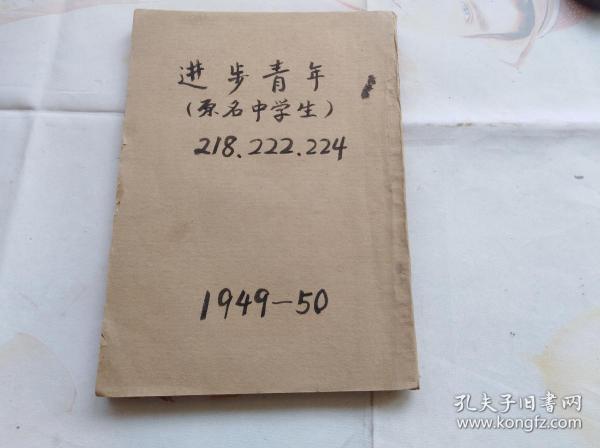 进步青年
(原名中学生)
218.222.224
1949-50
孔夫子旧书网
www.kongfz.com